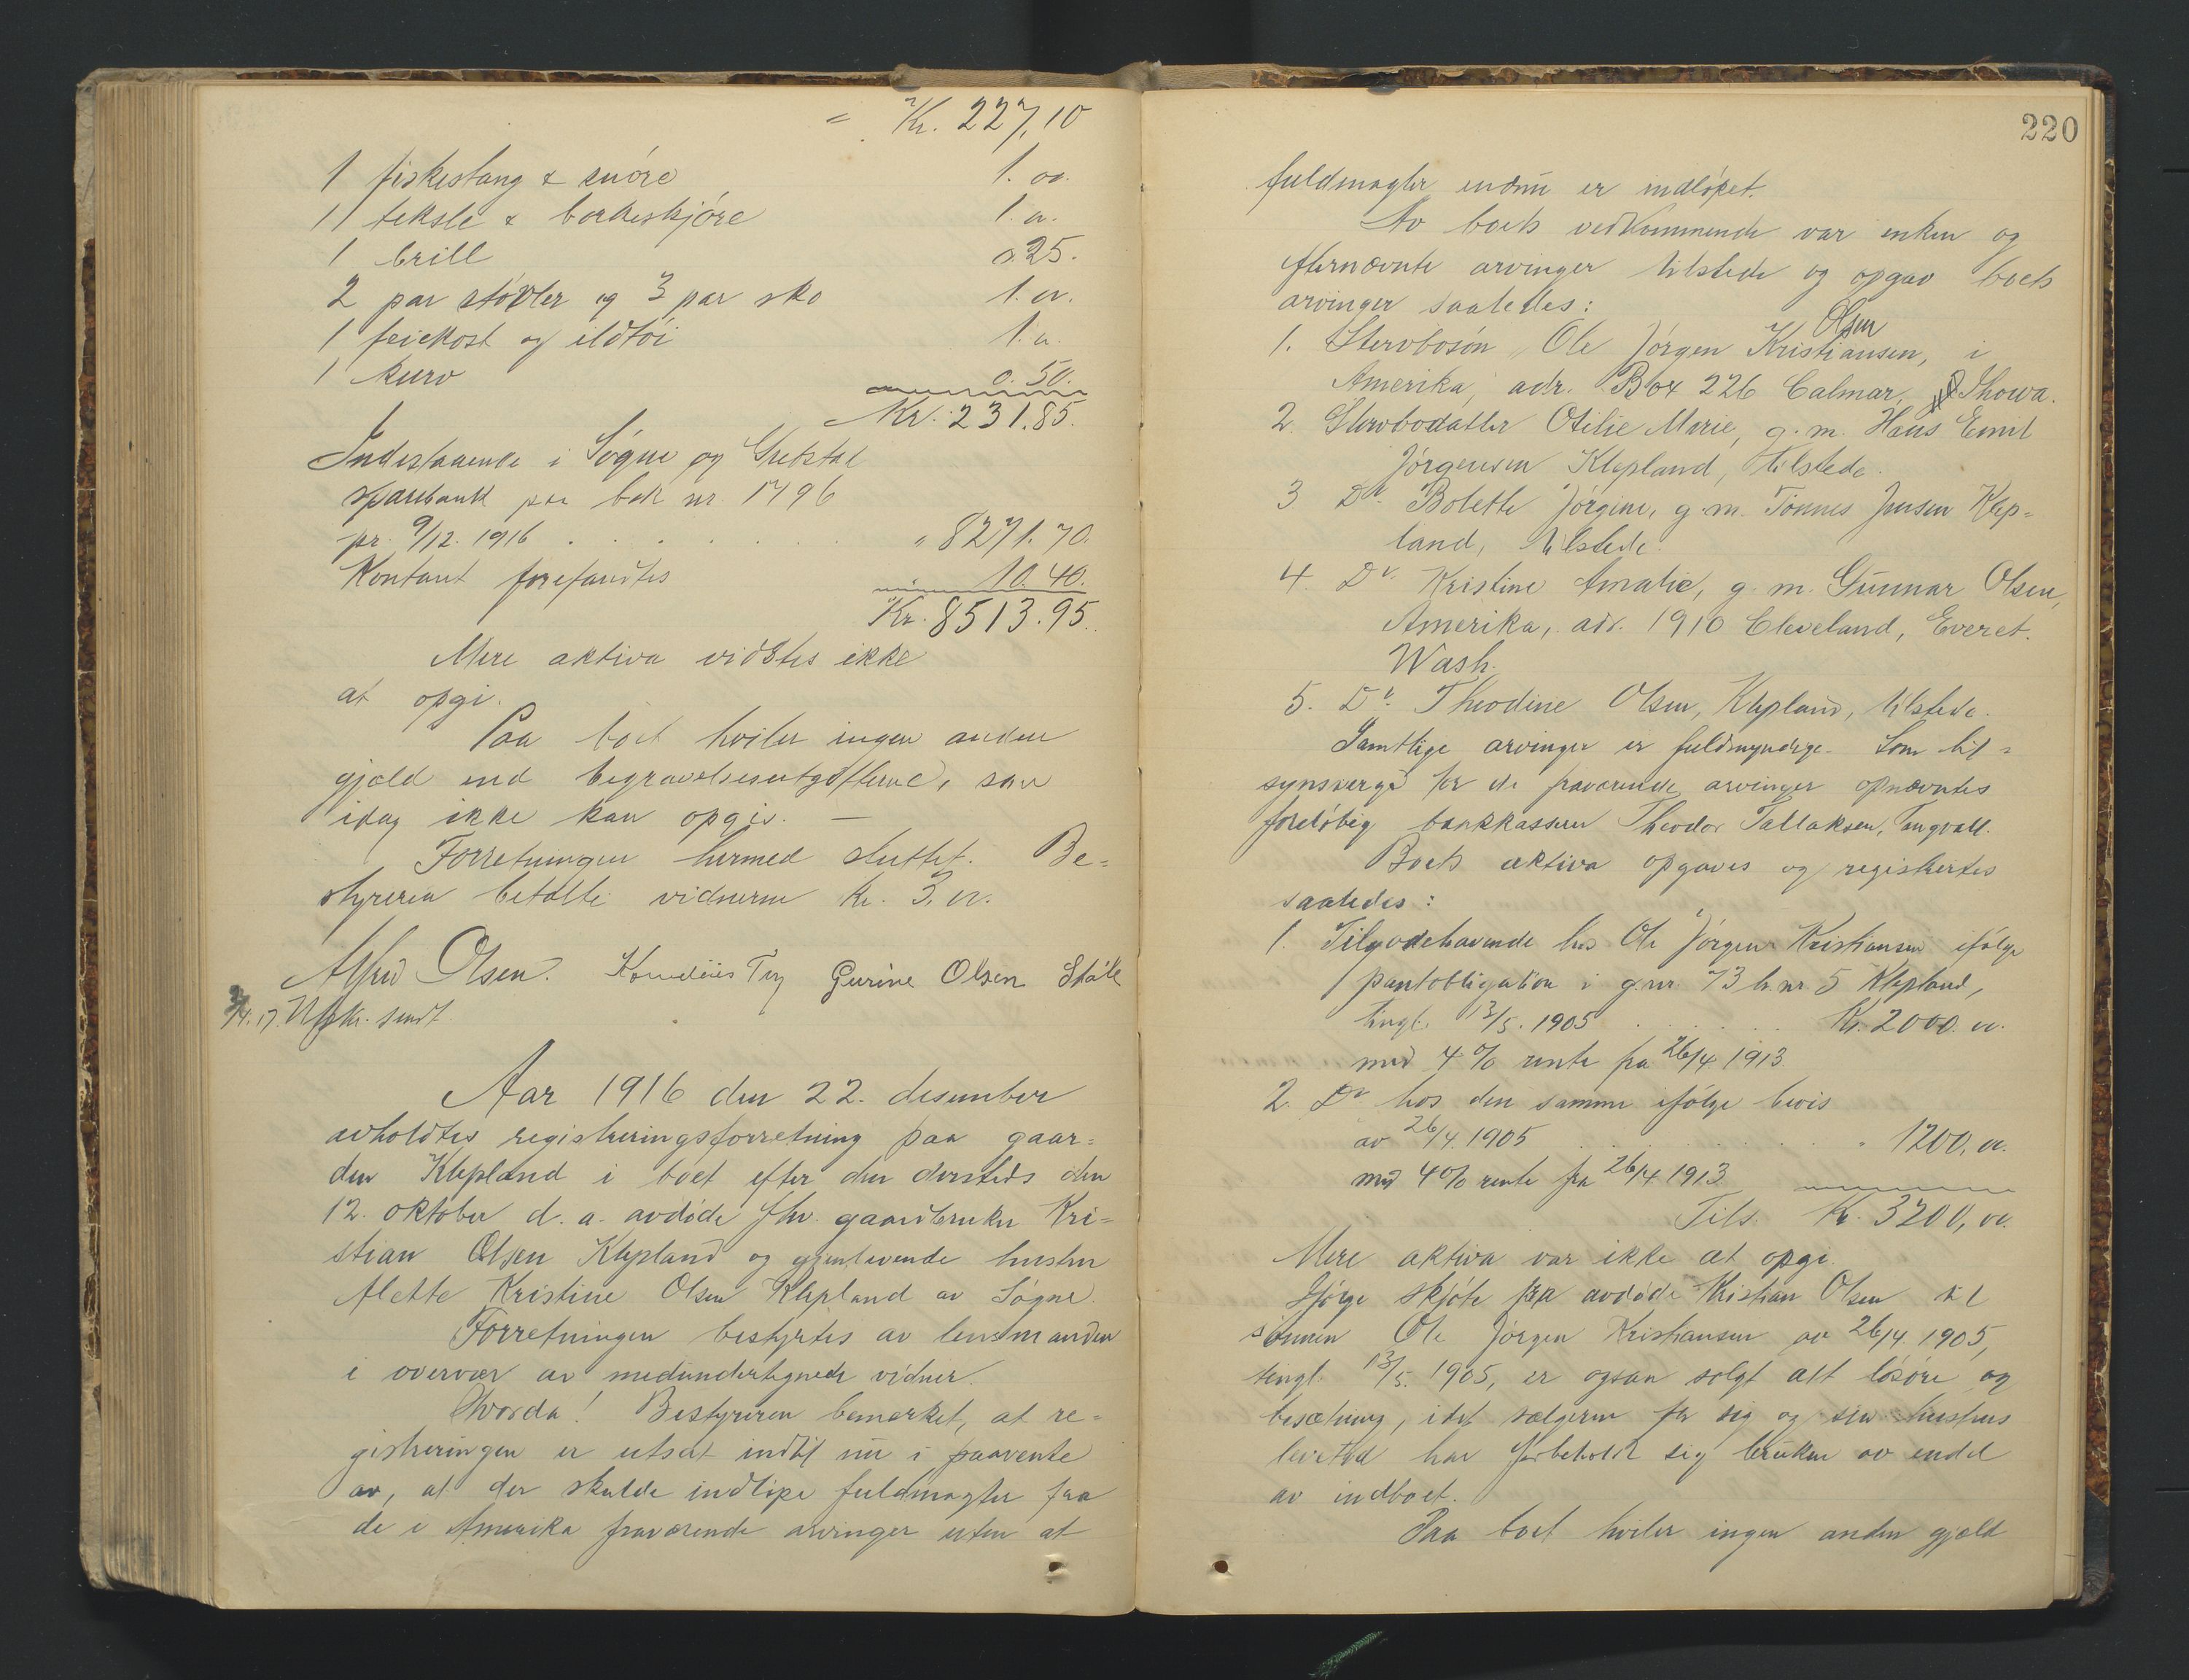 = Kr. 227,10
1 fiskestang & snöre 1.00.
1 teksle & barkeskjöre 1.00.
1 brill 0.25.
2 par stövler og 3 par sko 1.00.
1 feiekost og ildtöi 1.00.
1 kurv 0.50.
Kr. 231.85.
Indestaaende i Sögne og Greipstad
sparebank paa bok nr. 1796
pr. 9/12. 1916 . . . . . . . " 8271.70.
Kontant forefandtes 10.40.
Kr. 8513.95.
Mere aktiva vidstes ikke
at opgi.
Paa boet hviler ingen anden
gjæld end begravelsesutgifterne, som
idag ikke kan opgis. —
Forretningen hermed sluttet. Be=
styreren betalte vidnerne kr. 3,00.
Alfred Olsen. Kornelius Try Gurine Olsen Stálle
2/4. 17. Utskr. sendt.
Aar 1916 den 22. desember
avholdtes registreringsforretning paa gaar=
den Klepland i boet efter den dersteds den
12. oktober d. a. avdöde fhv. gaardbruker Kri=
stian Olsen Klepland og gjenlevende hustru
Alette Kristine Olsen Klepland av Sögne.
Forretningen bestyrtes av lensmanden
i overvær av medundertegnede vidner.
Hvorda! Bestyreren bemerket, at re=
gistreringen er utsat indtil nu i paavente
av, at der skulde indlöpe fuldmagter fra
de i Amerika fraværende arvinger uten at
220
fuldmagter endnu er indlöpet.
Av boets vedkommende var enken og
efternævnte arvinger tilstede og opgav boets
arvinger saaledes:
Olsen
1. Stervbosön Ole Jörgen Kristiansen, i
Amerika, adr. Box 226 Calmar, Ihowa.
2. Stervbodatter Otilie Marie, g. m. Hans Emil
Jörgensen Klepland, tilstede.
3 Do. Bolette Jörgine, g. m. Tönnes Jensen Klep=
land, tilstede.
4. Do. Kristine Amalie, g. m. Gunnar Olsen,
Amerika, adr. 1910 Cleveland, Everet.
Wash.
5. Do. Theodine Olsen, Klepland, tilstede.
Samtlige arvinger er fuldmyndige. Som til=
synsverge for de fraværende arvinger opnævntes
forelöbig bankkasserer Theodor Tallaksen, Tangvall.
Boets aktiva opgaves og registrertes
saaledes:
1. Tilgodehavende hos Ole Jörgen Kristiansen ifölge
pantobligation i g.nr. 73 b.nr. 5 Klepland,
tingl. 13/5. 1905 . . . . . Kr. 2000.00.
med 4 % rente fra 26/4 1913
2. Do hos den samme ifölge bevis
av 26/4. 1905 . . . . . . " 1200,00.
med 4% rente fra 26/4 1913
Tils. Kr. 3200,00.
Mere aktiva var ikke at opgi.
Ifölge skjöte fra avdöde Kristian Olsen til
sönnen Ole Jörgen Kristiansen av 26/4 1905,
tingl. 13/5. 1905, er ogsaa solgt alt lösöre og
besætning, idet sælgeren for sig og sin hustrus
levetid har forbeholdt sig bruken av endel
av indboet.
Paa boet hviler ingen anden gjæld